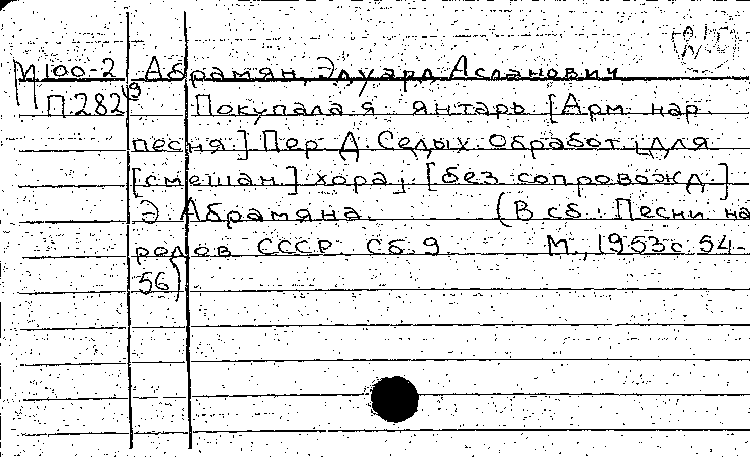 М100-2 Абрамян, Эдуард Асланович
П282 Покупала я янтарь [Арм. нар.
песня] Пер. Д. Седых. Обработ. для
[смешан.] хора, [без сопровожд.]
Э. Абрамяна. (В сб.: Песни на
родов СССР. Сб. 9 М., 1953 с. 54-
56)